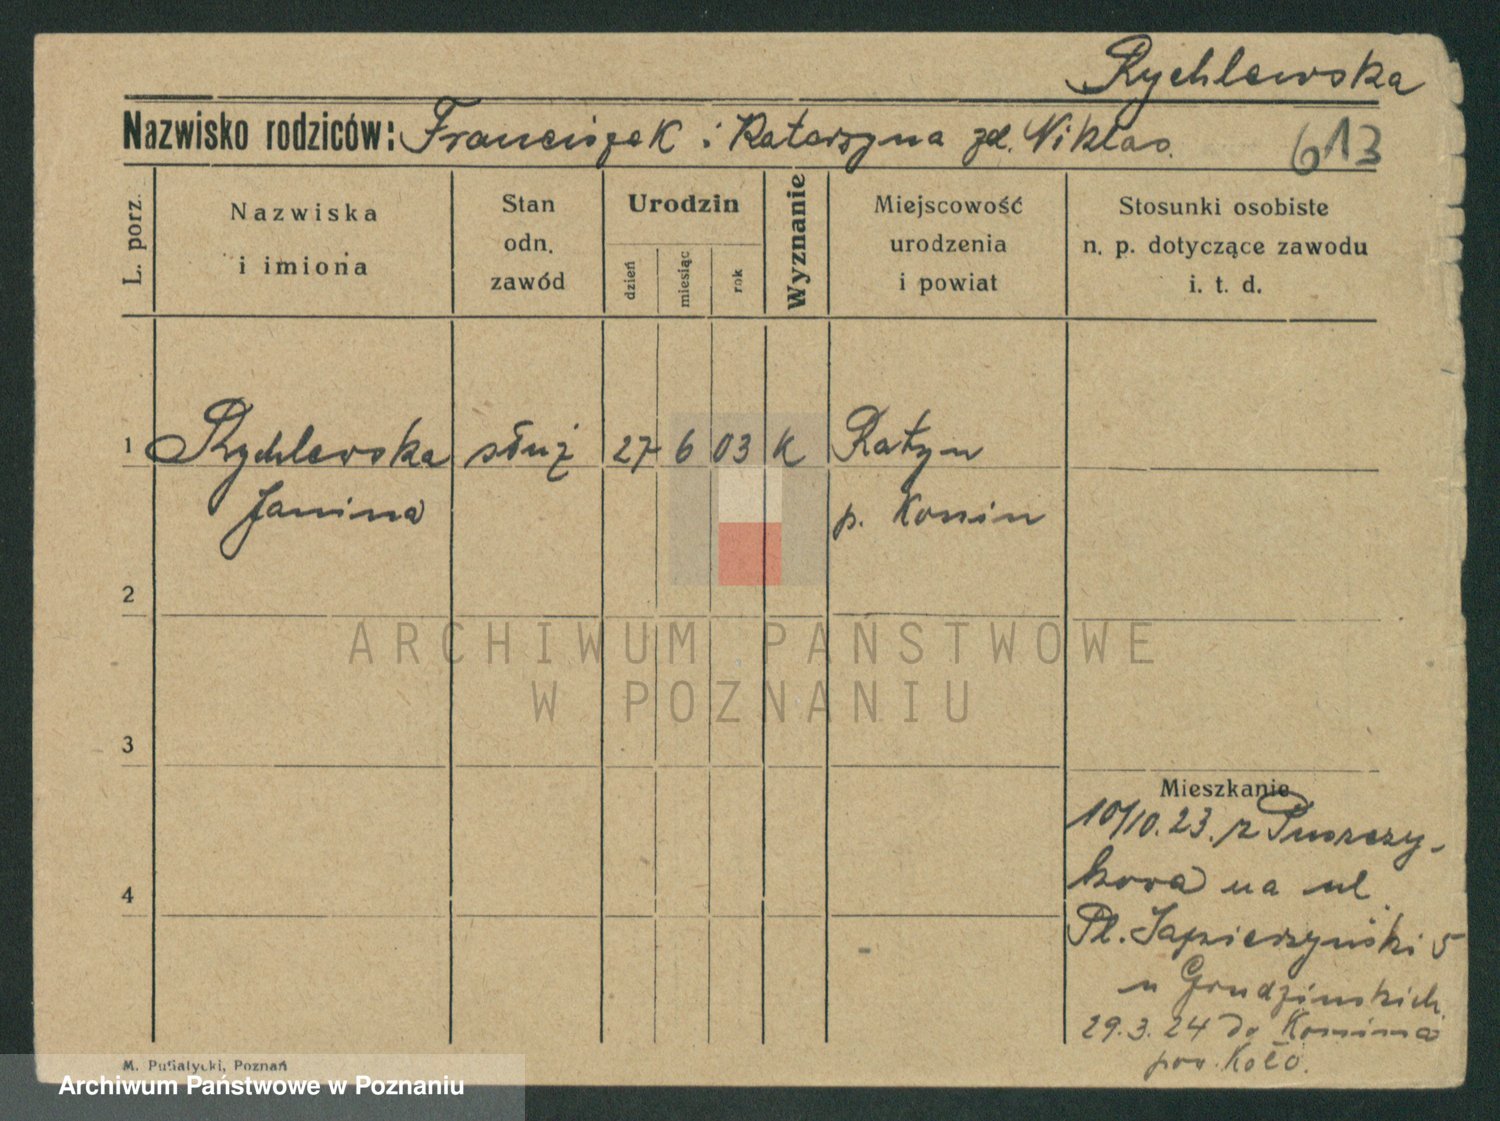 Rychlewska
Nazwisko rodziców: Franciszek i Katarzyna zd. Niklas.
613
L. porz.
Nazwiska
i imiona
Stan
odn.
zawód
Urodzin
dzień
miesiąc
rok
Wyznanie
Miejscowość
urodzenia
i powiat
Stosunki osobiste
n. p. dotyczące zawodu
i. t. d.
1 Rychlewska służ 27 6 03 K Ratyn
Janina p. Konin
2
ARCHIWUM PAŃSTWOWE
W POZNANIU
3
4
Mieszkanie
10/10.23. z Puszczy-
kowa na ul.
Pl. Sapierzyński 5
u Grudzińskich.
29.3.24 do Konina
pow. Koło.
M. Pusiatycki, Poznań
Archiwum Państwowe w Poznaniu